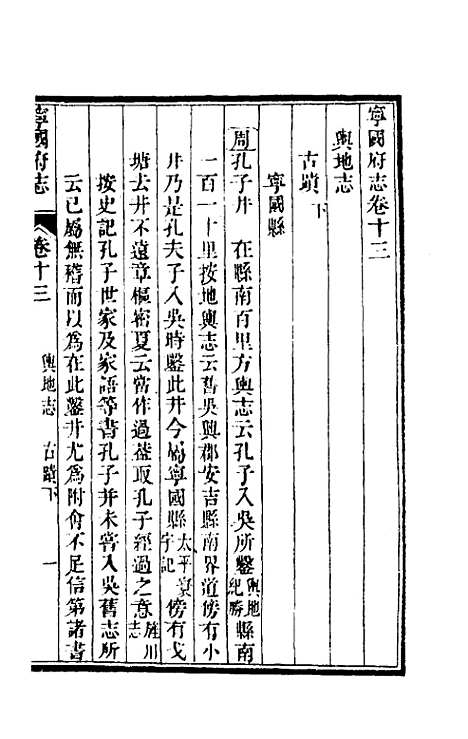 寧國府志卷十三
輿地志
古蹟下
寧國縣
周孔子井　在縣南百里方輿志云孔子入吳所鑿輿地紀勝縣南
一百一十里按地輿志云舊吳興郡安吉縣南界道傍有小
井乃是孔夫子入吳時鑿此井今屬寧國縣太平寰宇記傍有戈
塘去井不遠章樞密夏云當作過蓋取孔子經過之意旌川志
按史記孔子世家及家語等書孔子并未嘗入吳舊志所
云已屬無稽而以爲在此鑿井尤爲附會不足信第諸書
寧國府志　卷十三　輿地志　古蹟下　一